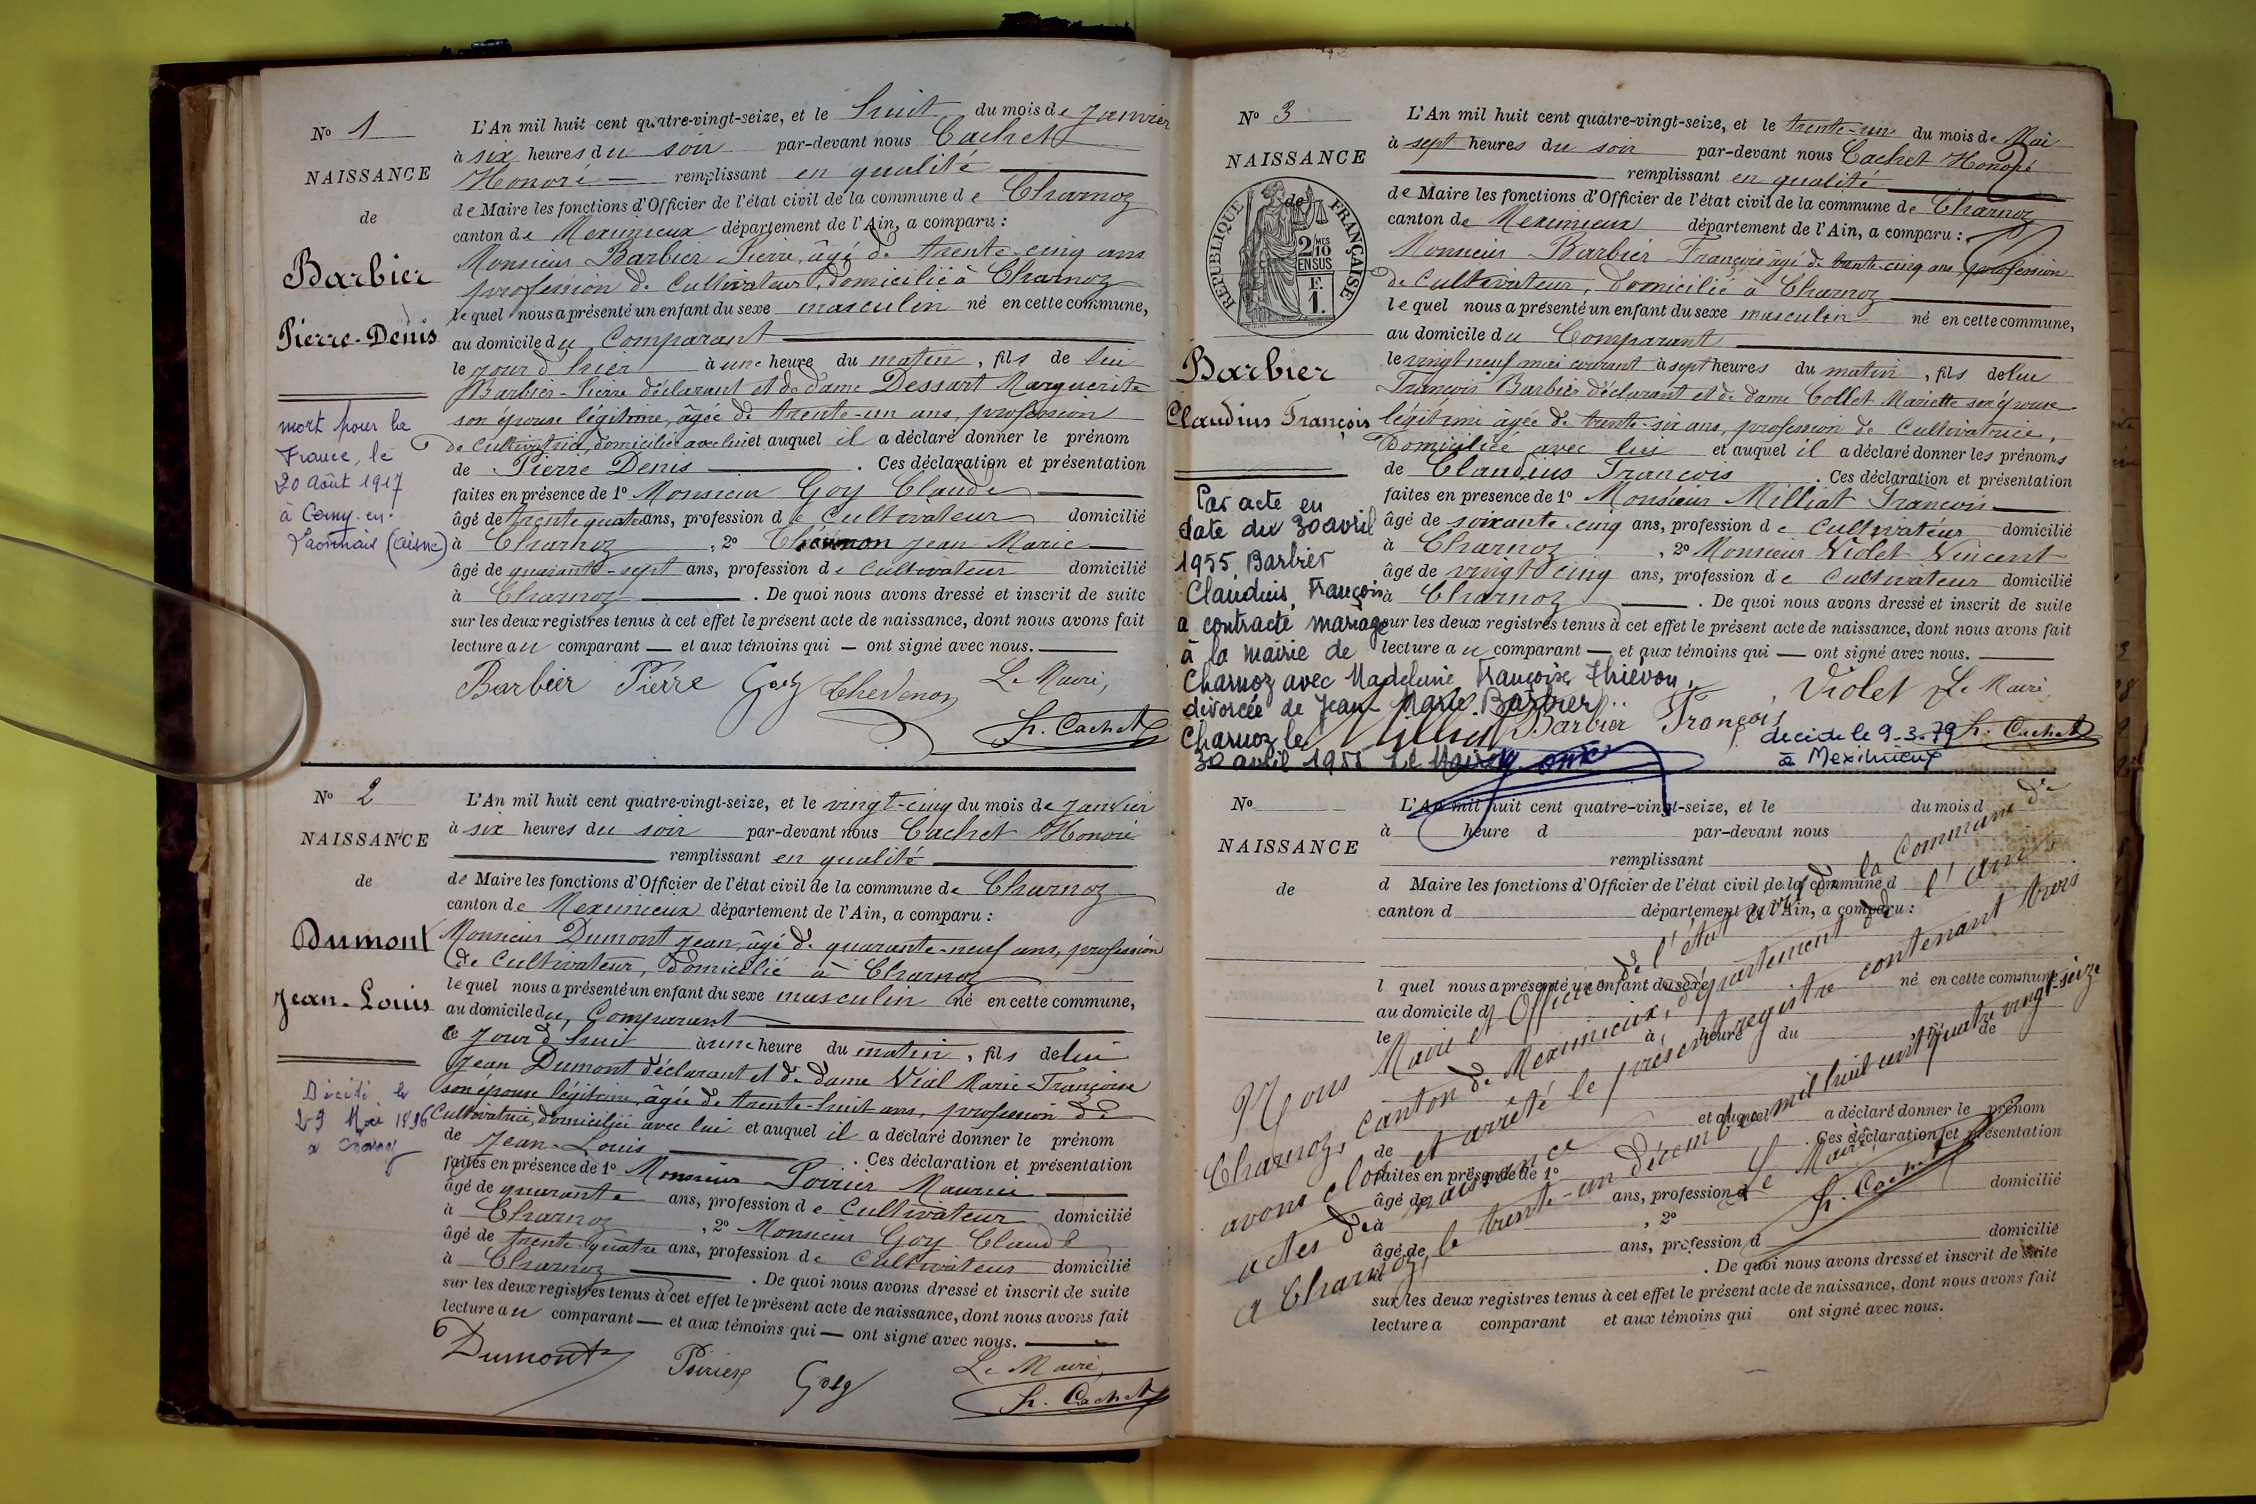 Nº 1
NAISSANCE
de
Barbier
Pierre-Denis
mort pour la
France, le
20 Août 1917
à Cerny-en-
Laonnais (Aisne)
L'An mil huit cent quatre-vingt-seize, et le huit du mois de Janvier
à six heures du soir par-devant nous Cachet
Honoré remplissant en qualité
de Maire les fonctions d'Officier de l'état civil de la commune de Charnoz
canton de Meximieux département de l'Ain, a comparu :
Monsieur Barbier Pierre, âgé de trente-cinq ans
profession de Cultivateur, domicilié à Charnoz
lequel nous a présenté un enfant du sexe masculin né en cette commune,
au domicile du Comparant
le jour d'hier à une heure du matin, fils de lui
Barbier-Pierre déclarant et de dame Dessart Marguerite
son épouse légitime, âgée de trente-un ans, profession
de Cultivatrice, domiciliée avec lui et auquel il a déclaré donner le prénom
de Pierre Denis . Ces déclaration et présentation
faites en présence de 1º Monsieur Goy Claude
âgé de trente quatre ans, profession de Cultivateur domicilié
à Charnoz , 2º Jean Marie
âgé de quarante-sept ans, profession de Cultivateur domicilié
à Charnoz . De quoi nous avons dressé et inscrit de suite
sur les deux registres tenus à cet effet le présent acte de naissance, dont nous avons fait
lecture au comparant — et aux témoins qui — ont signé avec nous.
Barbier Pierre Goy Thévenon Le Maire,
H. Cachet
Nº 2
NAISSANCE
de
Dumont
Jean-Louis
Décédé le
29 Mai 1896
à Charnoz
L'An mil huit cent quatre-vingt-seize, et le vingt-cinq du mois de Janvier
à six heures du soir par-devant nous Cachet Honoré
remplissant en qualité
de Maire les fonctions d'Officier de l'état civil de la commune de Charnoz
canton de Meximieux département de l'Ain, a comparu :
Monsieur Dumont Jean, âgé de quarante-neuf ans, profession
de Cultivateur, domicilié à Charnoz
lequel nous a présenté un enfant du sexe masculin né en cette commune,
au domicile du Comparant
ce jour d'hui à une heure du matin, fils de lui
Jean Dumont déclarant et de dame Vial Marie-Françoise
son épouse légitime, âgée de trente-huit ans, profession de
Cultivatrice, domiciliée avec lui et auquel il a déclaré donner le prénom
de Jean-Louis . Ces déclaration et présentation
faites en présence de 1º Monsieur Poirier Maurice
âgé de quarante ans, profession de Cultivateur domicilié
à Charnoz , 2º Monsieur Goy Claude
âgé de trente quatre ans, profession de Cultivateur domicilié
à Charnoz . De quoi nous avons dressé et inscrit de suite
sur les deux registres tenus à cet effet le présent acte de naissance, dont nous avons fait
lecture au comparant — et aux témoins qui — ont signé avec nous.
Dumont Poirier Goy Le Maire,
H. Cachet
Nº 3
NAISSANCE
de
RÉPUBLIQUE FRANÇAISE
2/10 MES
EN SUS
F.
1.
Barbier
Claudius François
Par acte en
date du 30 avril
1955, Barbier
Claudius, François
a contracté mariage
à la mairie de
Charnoz avec Madeleine Françoise Thievon,
divorcée de Jean-Marie Barbier.
Charnoz le
30 avril 1955 Le Maire
L'An mil huit cent quatre-vingt-seize, et le trente-un du mois de Mai
à sept heures du soir par-devant nous Cachet Honoré
remplissant en qualité
de Maire les fonctions d'Officier de l'état civil de la commune de Charnoz
canton de Meximieux département de l'Ain, a comparu :
Monsieur Barbier François âgé de trente-cinq ans, profession
de Cultivateur, domicilié à Charnoz
lequel nous a présenté un enfant du sexe masculin né en cette commune,
au domicile du Comparant
le vingt neuf mai courant à sept heures du matin, fils de lui
François Barbier déclarant et de dame Collet Mariette son épouse
légitime âgée de trente-six ans, profession de Cultivatrice,
domiciliée avec lui et auquel il a déclaré donner les prénoms
de Claudius François . Ces déclaration et présentation
faites en présence de 1º Monsieur Milliat François
âgé de soixante-cinq ans, profession de Cultivateur domicilié
à Charnoz , 2º Monsieur Violet Vincent
âgé de vingt cinq ans, profession de Cultivateur domicilié
à Charnoz . De quoi nous avons dressé et inscrit de suite
sur les deux registres tenus à cet effet le présent acte de naissance, dont nous avons fait
lecture au comparant — et aux témoins qui — ont signé avec nous.
Milliat Barbier François Violet Le Maire
H. Cachet
décédé le 9-3-79
à Meximieux
Nº
NAISSANCE
de
L'An mil huit cent quatre-vingt-seize, et le du mois d
à heure d par-devant nous
remplissant
d Maire les fonctions d'Officier de l'état civil de la commune d
canton d département de l'Ain, a comparu :
l quel nous a présenté un enfant du sexe né en cette commune,
au domicile d
le à heure du , fils de
et auquel a déclaré donner le prénom
de . Ces déclaration et présentation
faites en présence de 1º
âgé de ans, profession d domicilié
à , 2º
âgé de ans, profession d domicilié
à . De quoi nous avons dressé et inscrit de suite
sur les deux registres tenus à cet effet le présent acte de naissance, dont nous avons fait
lecture a comparant et aux témoins qui ont signé avec nous.
Nous Maire et Officier de l'état civil de la Commune de
Charnoz, canton de Meximieux, département de l'Ain
avons clos et arrêté le présent registre contenant trois
actes de naissance
à Charnoz, le trente-un décembre mil huit cent quatre vingt-seize
Le Maire,
H. Cachet